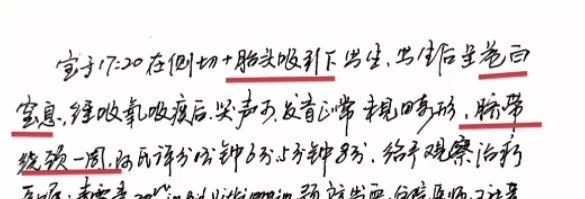 宝于17:20在侧切+胎头吸引下出生,出生后呈苍白
窒息,经吸氧吸痰后,哭声可,发育正常未见畸形,脐带
绕颈一周,阿氏评分1分钟6分,5分钟8分,给予观察治疗